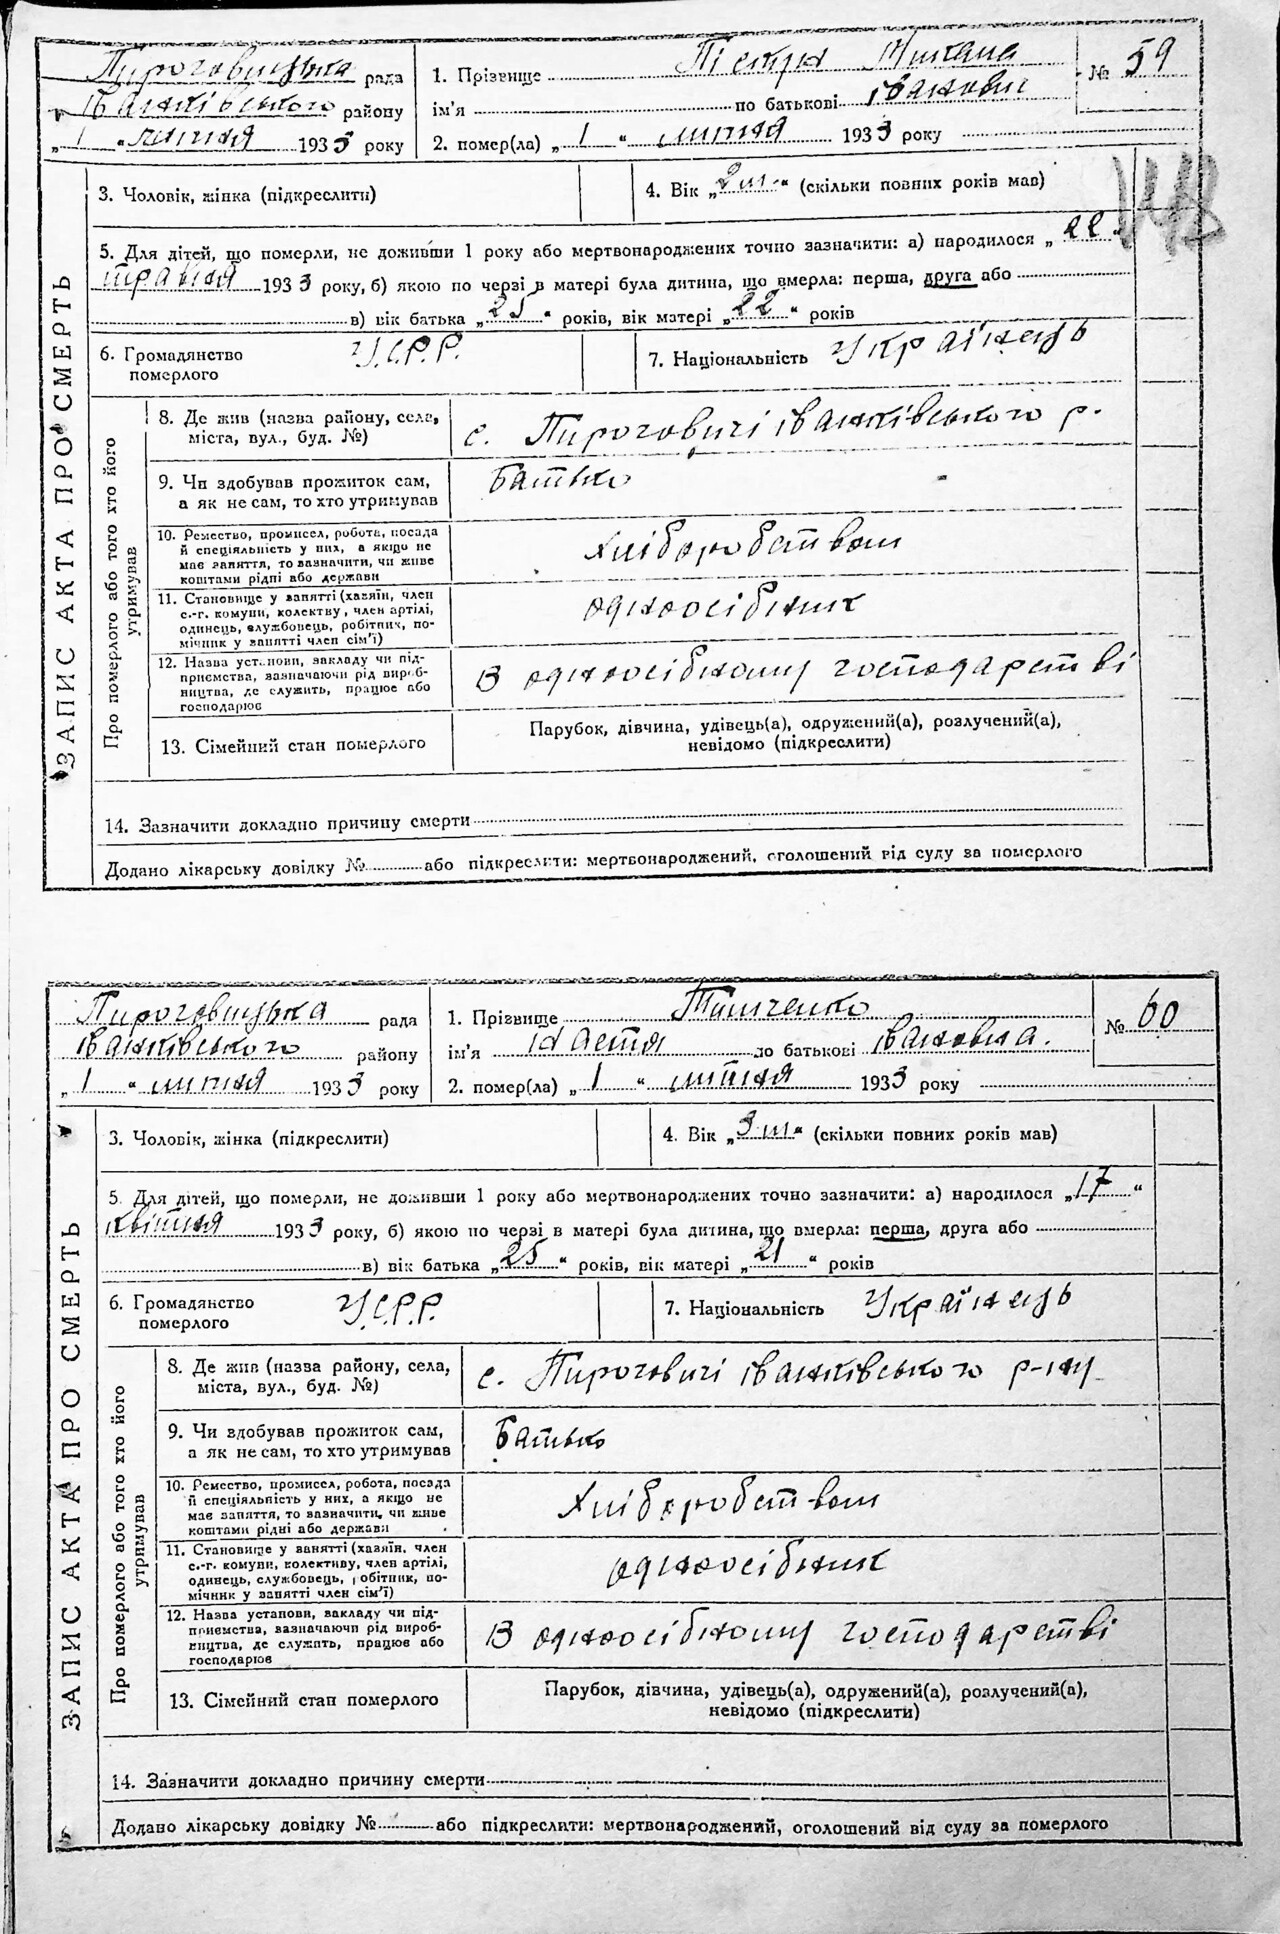 Пироговицька рада
Іванківського району
„ 1 “ липня 1933 року
1. Прізвище Пієтри Микала
ім'я по батькові Іванович
2. помер(ла) „ 1 “ липня 1933 року
№ 59
ЗАПИС АКТА ПРО СМЕРТЬ
3. Чоловік, жінка (підкреслити)
4. Вік „ 2 м. “ (скільки повних років мав)
5. Для дітей, що померли, не доживши 1 року або мертвонароджених точно зазначити: а) народилося „ 22 “
травня 1933 року, б) якою по черзі в матері була дитина, що вмерла: перша, друга або
в) вік батька „ 25 “ років, вік матері „ 22 “ років
6. Громадянство
померлого
У.С.Р.Р.
7. Національність Українець
Про померлого або того хто його
утримував
8. Де жив (назва району, села,
міста, вул., буд. №)
с. Пироговичі Іванківського р.
9. Чи здобував прожиток сам,
а як не сам, то хто утримував
Батько
10. Ремество, промисел, робота, посада
й спеціяльність у них, а якщо не
має заняття, то зазначити, чи живе
коштами рідні або держави
Хліборобством
11. Становище у занятті (хазяїн, член
с.-г. комуни, колективу, член артілі,
одинець, службовець, робітник, по-
мічник у занятті член сім'ї)
одноосібник
12. Назва установи, закладу чи під-
приємства, зазначаючи рід вироб-
ництва, де служить, працює або
господарює
В одноосібному господарстві
13. Сімейний стан померлого
Парубок, дівчина, удівець(а), одружений(а), розлучений(а),
невідомо (підкреслити)
14. Зазначити докладно причину смерти
Додано лікарську довідку № або підкреслити: мертвонароджений, оголошений від суду за померлого
Пироговицька рада
Іванківського району
„ 1 “ липня 1933 року
1. Прізвище Тимченко
ім'я Настя по батькові Івановна.
2. помер(ла) „ 1 “ липня 1933 року
№ 60
ЗАПИС АКТА ПРО СМЕРТЬ
3. Чоловік, жінка (підкреслити)
4. Вік „ 3 м “ (скільки повних років мав)
5. Для дітей, що померли, не доживши 1 року або мертвонароджених точно зазначити: а) народилося „ 17 “
квітня 1933 року, б) якою по черзі в матері була дитина, що вмерла: перша, друга або
в) вік батька „ 25 “ років, вік матері „ 21 “ років
6. Громадянство
померлого
У.С.Р.Р.
7. Національність Українець
Про померлого або того хто його
утримував
8. Де жив (назва району, села,
міста, вул., буд. №)
с. Пироговичі Іванківського р-ну
9. Чи здобував прожиток сам,
а як не сам, то хто утримував
Батько
10. Ремество, промисел, робота, посада
й спеціяльність у них, а якщо не
має заняття, то зазначити, чи живе
коштами рідні або держави
Хліборобством
11. Становище у занятті (хазяїн, член
с.-г. комуни, колективу, член артілі,
одинець, службовець, робітник, по-
мічник у занятті член сім'ї)
одноосібник
12. Назва установи, закладу чи під-
приємства, зазначаючи рід вироб-
ництва, де служить, працює або
господарює
В одноосібному господарстві
13. Сімейний стан померлого
Парубок, дівчина, удівець(а), одружений(а), розлучений(а),
невідомо (підкреслити)
14. Зазначити докладно причину смерти
Додано лікарську довідку № або підкреслити: мертвонароджений, оголошений від суду за померлого